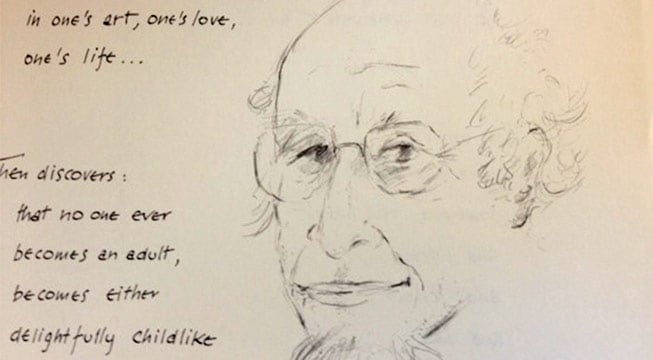 in one's art, one's love,
one's life...
then discovers:
that no one ever
becomes an adult,
becomes either
delightfully childlike